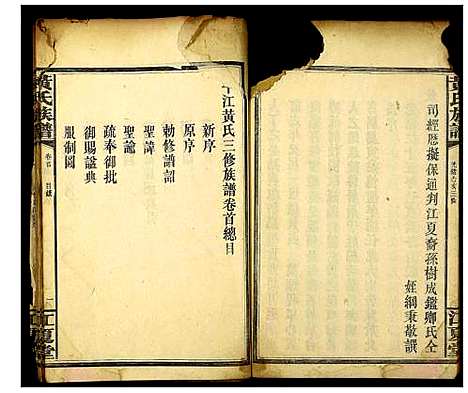 黃氏族譜
江夏堂
司經歷擬保通判江夏裔孫樹成鑑卿氏仝
姪綱秉敬譔
江黃氏三修族譜卷首總目
新序
原序
勅修譜詔
聖諱
聖諭
疏奉御批
御賜諡典
服制圖
黃氏族譜
卷首
目錄
江夏堂